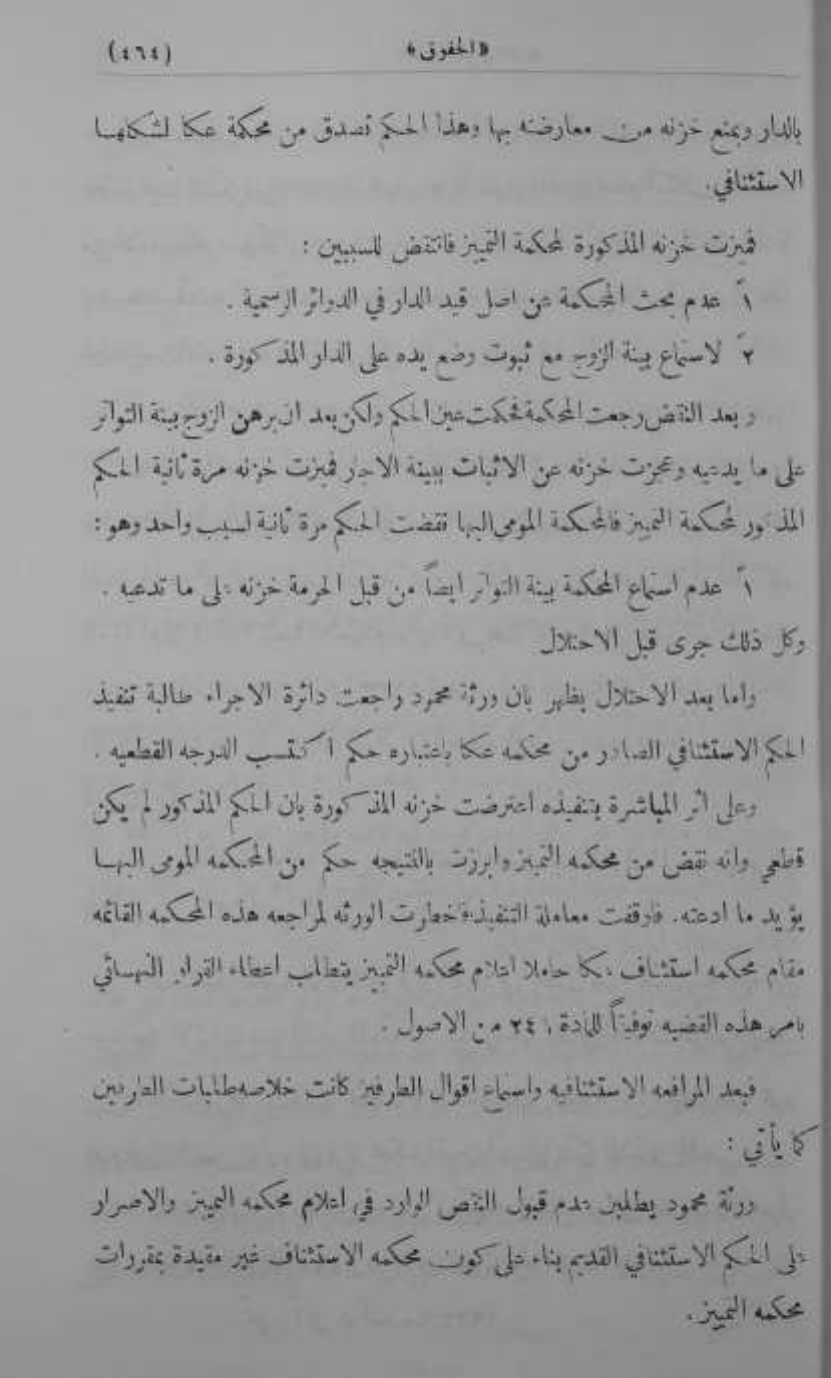 (٤٦٤) «الحقوق»
بالدار وبمنع خزنه من معارضته بها وهذا الحكم تصدق من محكمة عكا لشكلها
الاستئنافي.
فميزت خزنه المذكورة لمحكمة التمييز فانتقض للسببين :
١ً عدم بحث المحكمة عن اصل قيد الدار في الدوائر الرسمية .
٢ً لاستماع بينة الزوج مع ثبوت وضع يده على الدار المذكورة .
و بعد النقض رجعت المحكمة فحكمت عين الحكم ولكن بعد ان برهن الزوج بينة التواتر
على ما يدعيه وعجزت خزنه عن الاثبات ببينة الاجار فميزت خزنه مرة ثانية الحكم
المذكور لمحكمة التمييز فالمحكمة المومى اليها نقضت الحكم مرة ثانية لسبب واحد وهو :
١ً عدم استماع المحكمة بينة التواتر ايضاً من قبل الحرمة خزنه على ما تدعيه .
وكل ذلك جرى قبل الاحتلال
واما بعد الاحتلال يظهر بان ورثة محمود راجعت دائرة الاجراء طالبة تنفيذ
الحكم الاستئنافي الصادر من محكمه عكا باعتباره حكم اكتسب الدرجه القطعيه .
وعلى اثر المباشرة بتنفيذه اعترضت خزنه المذكورة بان الحكم المذكور لم يكن
قطعي وانه نقض من محكمه التمييز وابرزت بالنتيجه حكم من المحكمه المومى اليها
يؤيد ما ادعته. فاوقفت معاملة التنفيذ فاضطرت الورثه لمراجعه هذه المحكمه القائمه
مقام محكمه استئناف عكا حاملا اعلام محكمه التمييز يتطلب اعطاء القرار النهائي
بامر هذه القضيه توفيقاً للمادة ٢٤١ من الاصول .
فبعد المرافعه الاستئنافيه واستماع اقوال الطرفين كانت خلاصه طلبات الطرفين
كما يأتي :
ورثة محمود يطلبن عدم قبول النقض الوارد في اعلام محكمه التمييز والاصرار
على الحكم الاستئنافي القديم بناء على كون محكمه الاستئناف غير مقيدة بمقررات
محكمه التمييز .